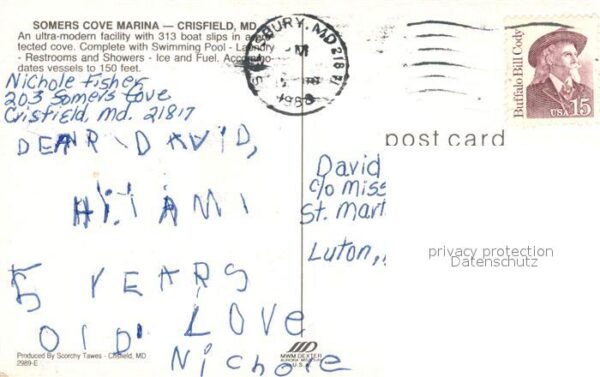 SOMERS COVE MARINA — CRISFIELD, MD
An ultra-modern facility with 313 boat slips in a
tected cove. Complete with Swimming Pool -
- Restrooms and Showers - Ice and Fuel.
dates vessels to 150 feet.
Nichole Fisher
203 Somers Cove
Crisfield, Md. 21817
DEAR DAVID,
HI. I AM I
5 YEARS
OlD LOVE
Nichole
Produced By Scorchy Tawes - Crisfield, MD
2989-E
MWM DEXTER
U.S.A.
MD 218
PM
Buffalo Bill Cody
USA 15
post card
David
c/o Miss
St. Mart
Luton,
privacy protection
Datenschutz